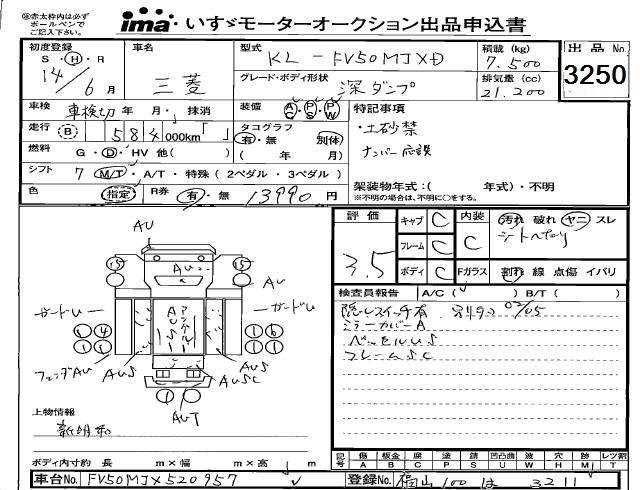 ㊟赤太枠内は必ず
ボールペンで
ご記入下さい。
ima いすゞモーターオークション出品申込書
初度登録 S・H・R 14年6月
車名 三菱
型式 KL-FV50MJXD
積載(kg) 7.500
出品No 3250
グレード・ボディ形状 深ダンプ
排気量(cc) 21.200
車検 車検切 年 月・抹消
装備 AC・PS・PW
特記事項
・土砂禁
ナンバー
走行 B 584000km「 」
タコグラフ 有・無 別体
( 年 月)
燃料 G・D・HV 他( )
シフト 7 M/T・A/T・特殊(2ペダル・3ペダル)
架装物年式:( 年式)・不明
※不明の場合は、不明に○をする。
色 指定 R券 有・無 13990円
評価 3.5
キャブ C
フレーム C
ボディ C
内装 C
汚れ 破れ ヤニ スレ
Fガラス 割れ 線 点傷 イバリ
検査員報告 A/C( ✓ ) B/T( )
隠しスイッチ有
ミラーカバーA
ベッセルUS
フレームSC
AU
15 AU 15
AU
ガードU ガードU
フェンダAU AUS AUS
AUSC
AUT
上物情報
新明和
ボディ内寸約 長 m×幅 m×高 m
記号 傷A 板金B 腐C 塗P 錆S 凹凸曲U 波W 穴H 跡M レツ割T
車台No. FV50MJX520957
登録No. 福山 100 は 3211